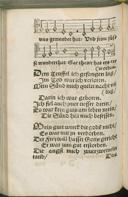 was gewendet hat / Und sein süß
se wunderthat / Gar theur hat ers er
worben
Dem Teuffel ich gefangen lag /
Im Tod war ich verloren
Mein Sünd mich quelet nacht und tag /
Darin ich war geboren.
Ich fiel auch jmer tieffer drein /
Es war kein guts am leben mein /
Die Sünd hat mich besessen.
Mein gute werck die golten nicht /
Es war mit jn verdorben.
Der frey will hasset Gotts gericht
Er war zum gut erstorben
Die angst mich zu
Das